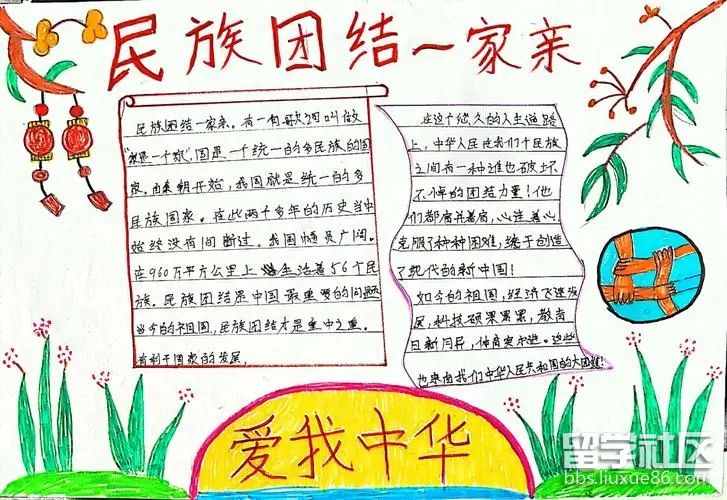 民族团结一家亲
民族团结一家亲。有一句歌词叫做
是一个家",国是一个统一的多民族的国
家。由秦朝开始,我国就是统一的多
民族国家。在此两千多年的历史当中
始终没有间断过。我国幅员广阔。
在960万平方公里上生活着56个民
族。民族团结是中国最重要的问题
当今的祖国,民族团结才是重中之重。
有利于国家的发展。
在这个悠久的人生道路
上,中华人民在我们个民族
之间有一种谁也破坏
不掉的团结力量!他
们都肩并着肩,心连着心
克服了种种困难,终于创造
了现代的新中国!
如今的祖国,经济飞速发
展,科技硕果累累,教育
日新月异,体育 这些
也来自我们中华人民共和国的大团结!
爱我中华
留学社区
bbs.liuxue86.com